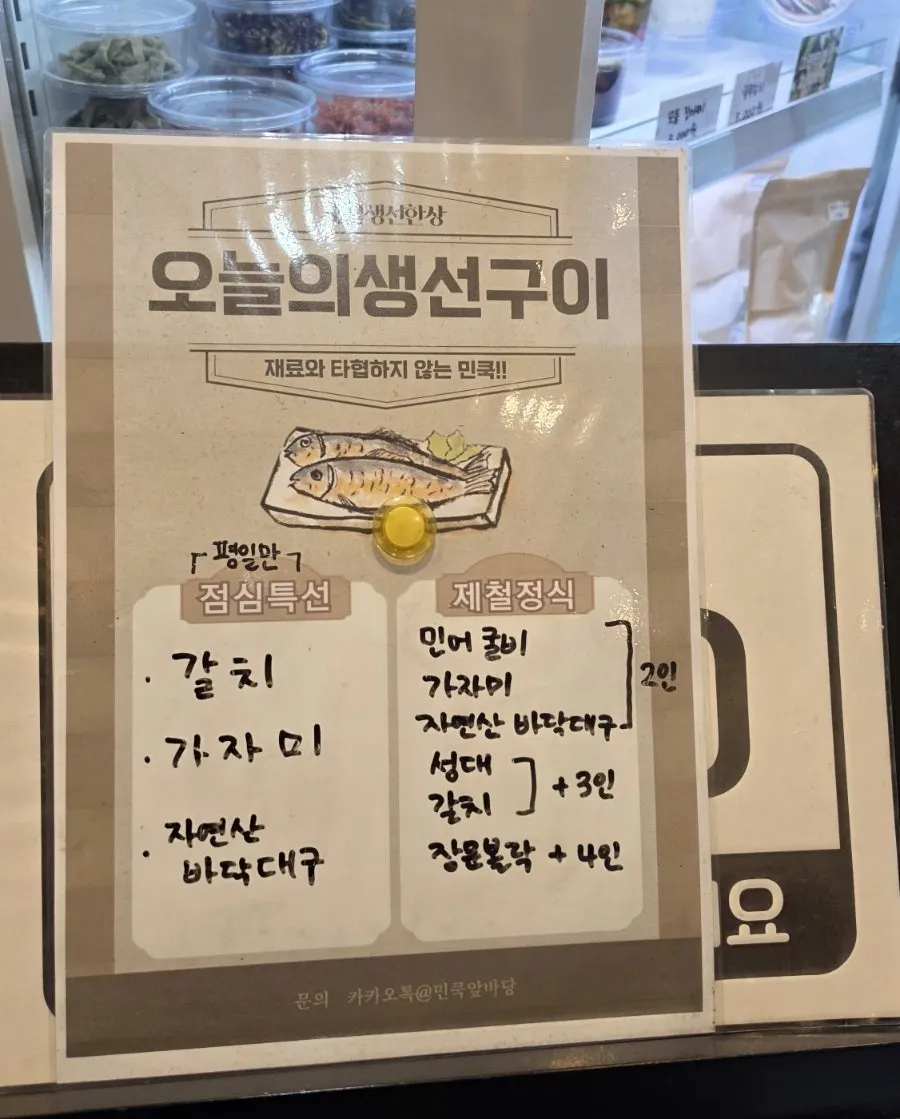 생선한상
오늘의생선구이
재료와 타협하지 않는 민쿡!!
평일만
점심특선
· 갈치
· 가자미
· 자연산
바닥대구
제철정식
민어 굴비
가자미
자연산 바닥대구
2인
성대
갈치
+3인
장문볼락 +4인
문의 카카오톡@민쿡앞바당
요